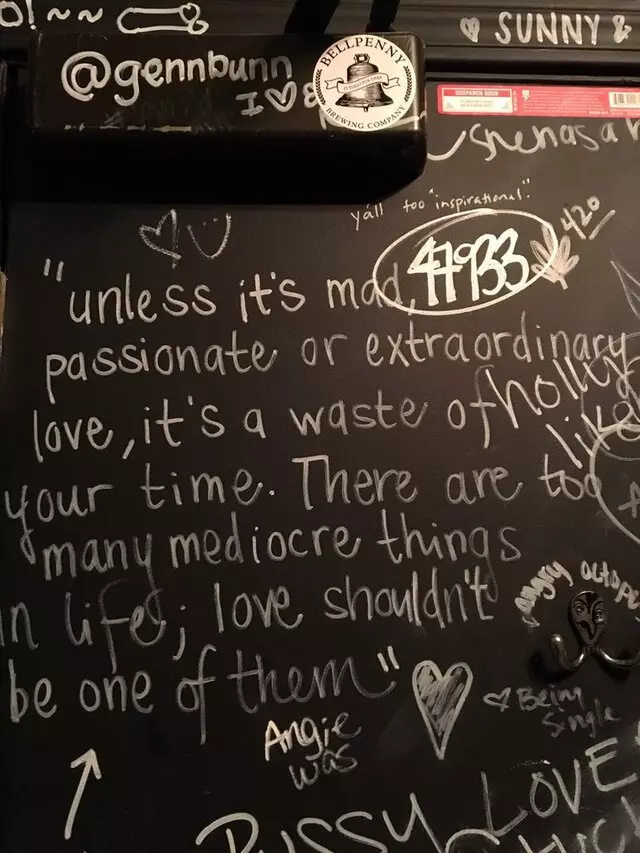 O! ~ ~
♡ SUNNY &
@gennbunn
I ♡ &
BELLPENNY
BREWING COMPANY
shenasa
y'all too "inspirational."
420
47933
"unless it's mad,
passionate or extraordinary
love, it's a waste of
your time. There are too
many mediocre things
in life; love shouldn't
be one of them"
holly
like
angry octopus
♡ Being
Single
Angie
was
PUSSY LOVE